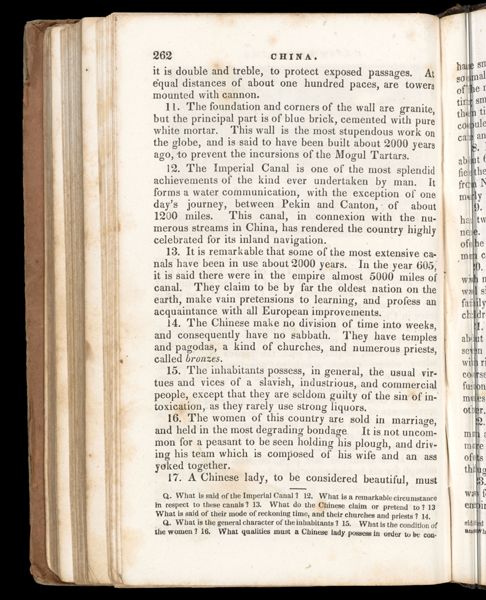 262 CHINA.
it is double and treble, to protect exposed passages. At
equal distances of about one hundred paces, are towers
mounted with cannon.
11. The foundation and corners of the wall are granite,
but the principal part is of blue brick, cemented with pure
white mortar. This wall is the most stupendous work on
the globe, and is said to have been built about 2000 years
ago, to prevent the incursions of the Mogul Tartars.
12. The Imperial Canal is one of the most splendid
achievements of the kind ever undertaken by man. It
forms a water communication, with the exception of one
day's journey, between Pekin and Canton, of about
1200 miles. This canal, in connexion with the nu-
merous streams in China, has rendered the country highly
celebrated for its inland navigation.
13. It is remarkable that some of the most extensive ca-
nals have been in use about 2000 years. In the year 605,
it is said there were in the empire almost 5000 miles of
canal. They claim to be by far the oldest nation on the
earth, make vain pretensions to learning, and profess an
acquaintance with all European improvements.
14. The Chinese make no division of time into weeks,
and consequently have no sabbath. They have temples
and pagodas, a kind of churches, and numerous priests,
called bronzes.
15. The inhabitants possess, in general, the usual vir-
tues and vices of a slavish, industrious, and commercial
people, except that they are seldom guilty of the sin of in-
toxication, as they rarely use strong liquors.
16. The women of this country are sold in marriage,
and held in the most degrading bondage. It is not uncom-
mon for a peasant to be seen holding his plough, and driv-
ing his team which is composed of his wife and an ass
yoked together.
17. A Chinese lady, to be considered beautiful, must
Q. What is said of the Imperial Canal? 12. What is a remarkable circumstance
in respect to these canals? 13. What do the Chinese claim or pretend to? 13
What is said of their mode of reckoning time, and their churches and priests? 14.
Q. What is the general character of the inhabitants? 15. What is the condition of
the women? 16. What qualities must a Chinese lady possess in order to be con-